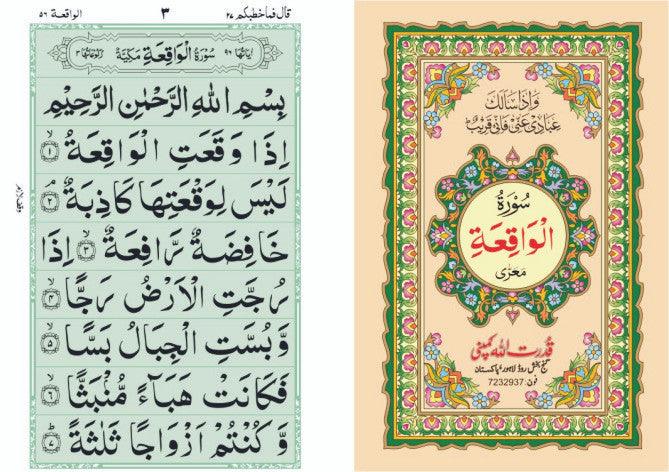 قال فما خطبکم ۲۷
۳
الواقعة ۵۶
اٰیَاتُهَا ۹۶ سُوْرَةُ الْوَاقِعَةِ مَكِّيَّةٌ رُكُوْعَاتُهَا ۳
بِسْمِ اللهِ الرَّحْمٰنِ الرَّحِيْمِ
اِذَا وَقَعَتِ الْوَاقِعَةُ ۱
لَيْسَ لِوَقْعَتِهَا كَاذِبَةٌ ۲
خَافِضَةٌ رَّافِعَةٌ ۳ اِذَا
رُجَّتِ الْاَرْضُ رَجًّا ۴
وَّ بُسَّتِ الْجِبَالُ بَسًّا ۵
فَكَانَتْ هَبَآءً مُّنْۢبَثًّا ۶
وَّ كُنْتُمْ اَزْوَاجًا ثَلٰثَةً ۷
وَاِذَا سَاَلَكَ
عِبَادِیْ عَنِّیْ فَاِنِّیْ قَرِیْبٌ ط
سُوْرَةُ
الْوَاقِعَةِ
مَعرّٰی
قدرت اللہ کمپنی
گنج بخش روڈ لاہور ۵ پاکستان
فون: 7232937